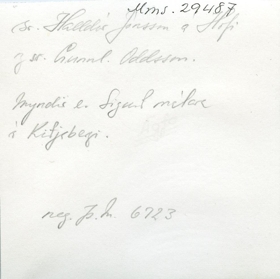 Mms. 29487
sr. Halldór Jónsson á Hofi
og sr. Gunnl. Oddsson.
Myndir e. Sigurð málara
neg. Þ.M. 6723